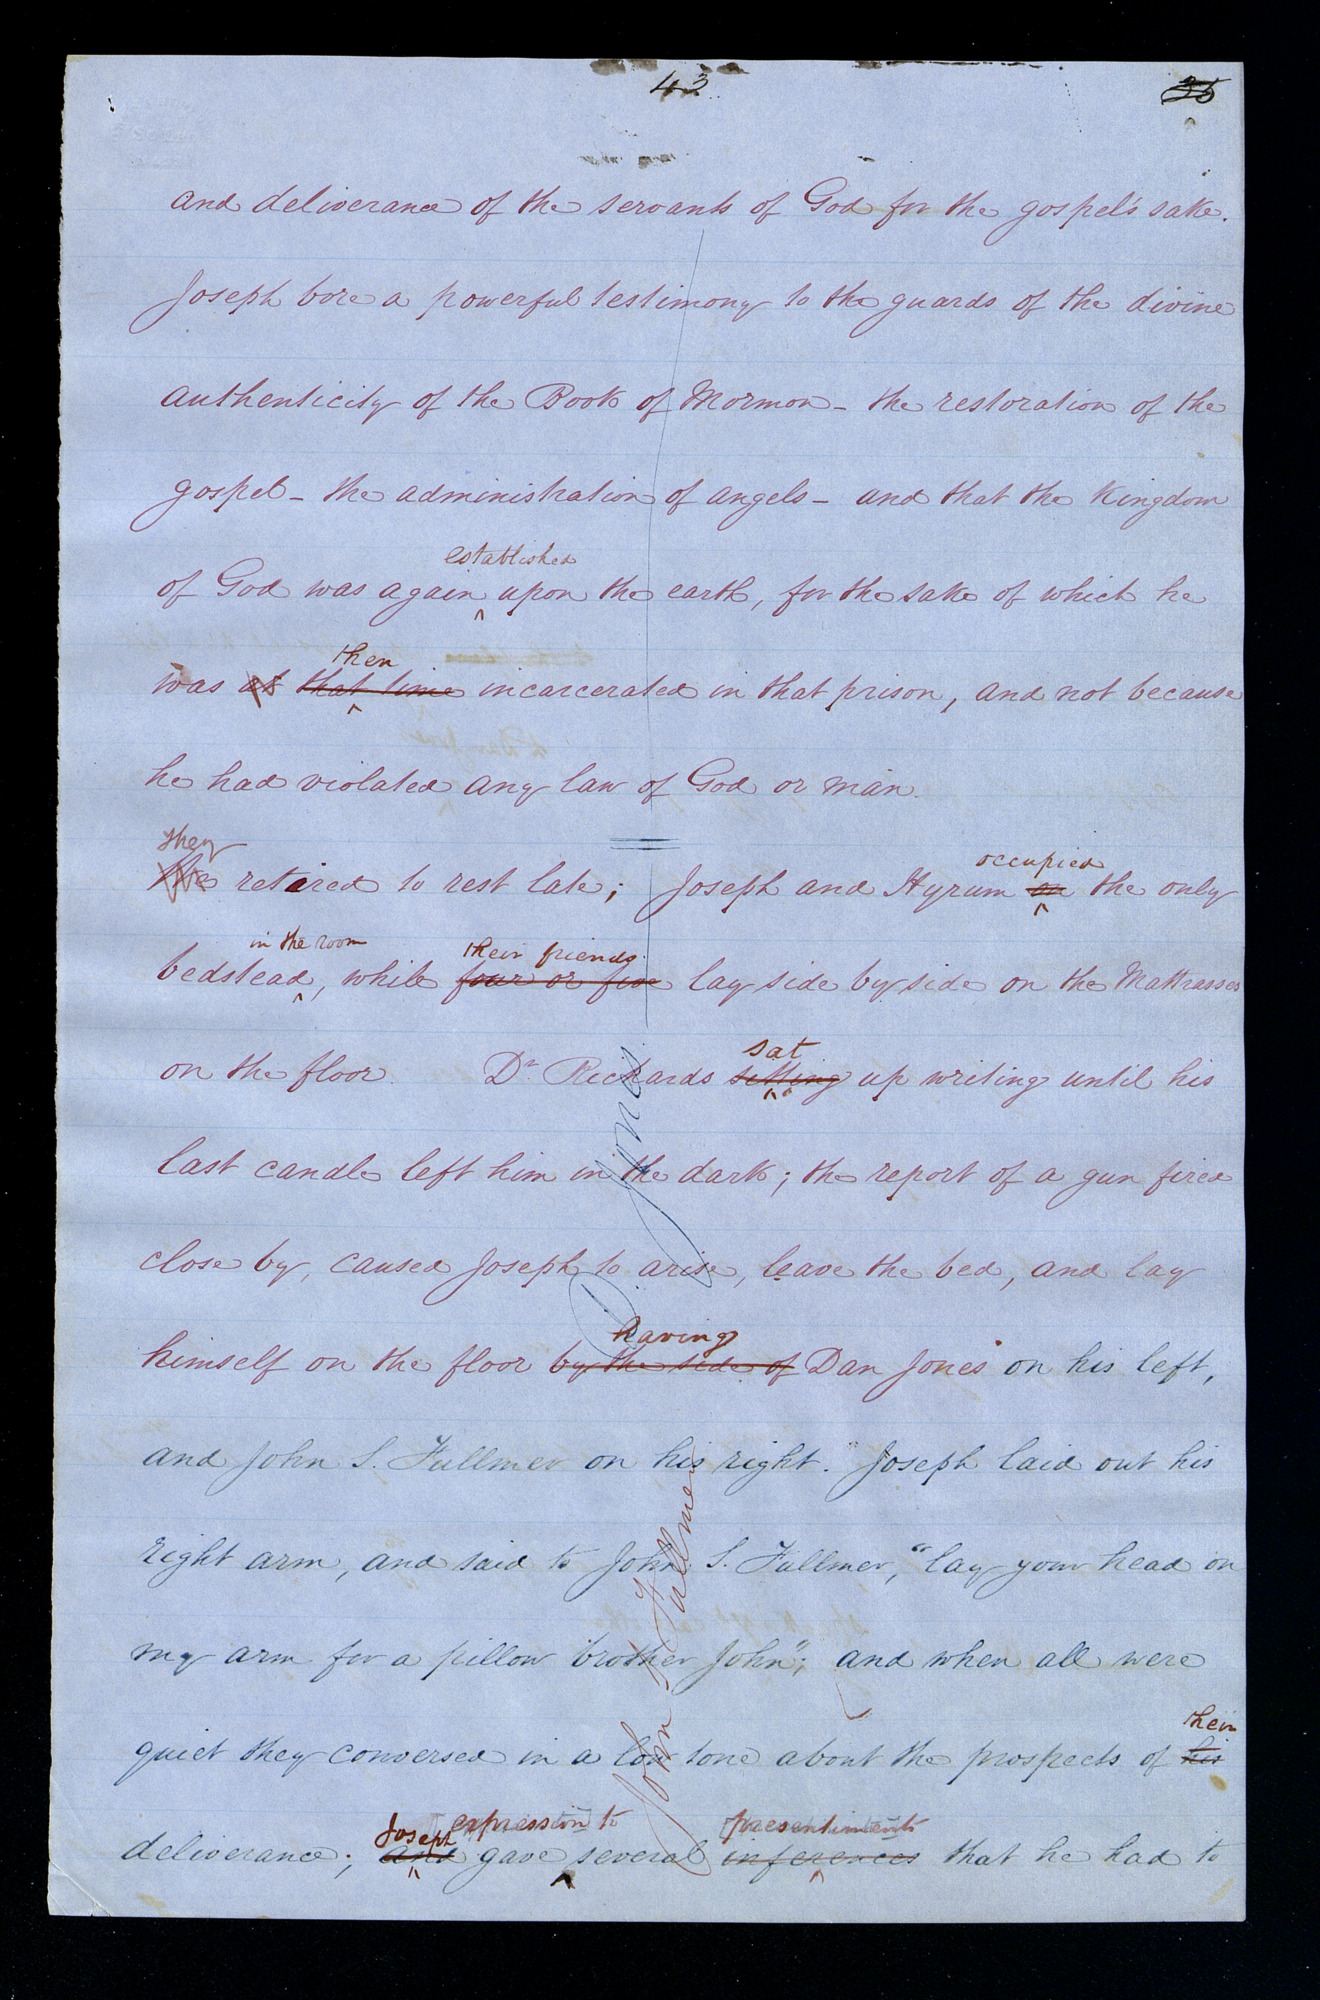 43 36
and deliverance of the servants of God for the gospel's sake.
Joseph bore a powerful testimony to the guards of the divine
authenticity of the Book of Mormon – the restoration of the
gospel – the administration of angels – and that the Kingdom
established
of God was again ^ upon the earth, for the sake of which he
then
was at that time incarcerated in that prison, and not because
he had violated any law of God or man.
they
We retired to rest late; Joseph and Hyrum on the only
occupied
in the room their friends
bedstead, while four or five lay side by side on the Mattrasses
sat
on the floor. Dr Richards sitting up writing until his
last candle left him in the dark; the report of a gun fired
close by, caused Joseph to arise, leave the bed, and lay
having
himself on the floor by the side of Dan Jones on his left,
and John S. Fullmer on his right. Joseph laid out his
right arm, and said to John S. Fullmer, "lay your head on
my arm for a pillow brother John"; and when all were
their
quiet they conversed in a low tone about the prospects of his
Joseph expression to presentiments
deliverance; and gave several inferences that he had to
D. Jones
John S Fullmer